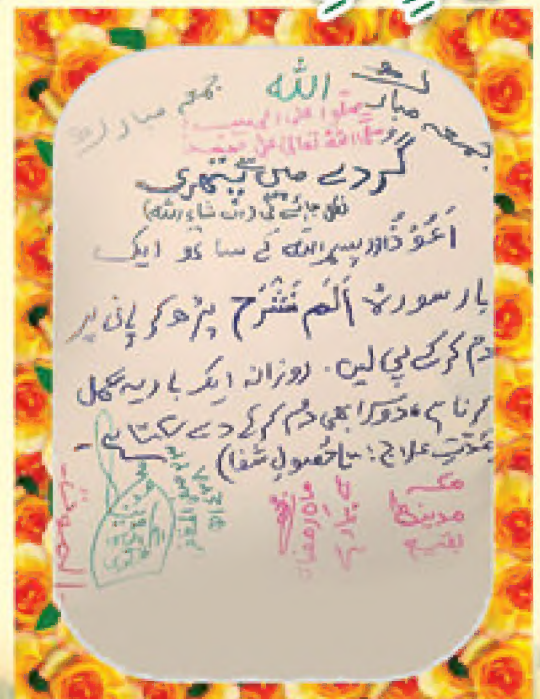 الله
جمعہ مبارک
جمعہ مبارک
صلوا علی الحبیب
صلی اللہ تعالیٰ علی محمد
گردے میں پتھری
نکل جائے گی (ان شاء اللہ)
اَعُوْذُ اور بسم اللہ کے ساتھ ایک
بار سورۃ اَلَمْ نَشْرَحْ پڑھ کر پانی پر
دم کرکے پی لیں۔ روزانہ ایک بار یہ عمل
کرنا ہے، دوسرا بھی دم کرکے دے سکتا ہے۔
(مدّتِ علاج: تا حصولِ شفا)
مکہ
مدینہ
بقیع